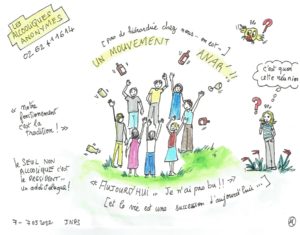 LES
ALCOOLIQUES
ANONYMES
02 62 41 16 14
[pas de hiérarchie chez nous... on est...]
UN MOUVEMENT ANAR'!!
c'est quoi
cette réunion
? ?
?
« notre
fonctionnement
c'est la
tradition! »
Le SEUL NON
ALCOOLIQUE c'est
le PRESIDENT...
un addictologue!
« AUJOURD'HUI... Je n'ai pas bu !! »
[et la vie est une succession d'aujourd'hui...]